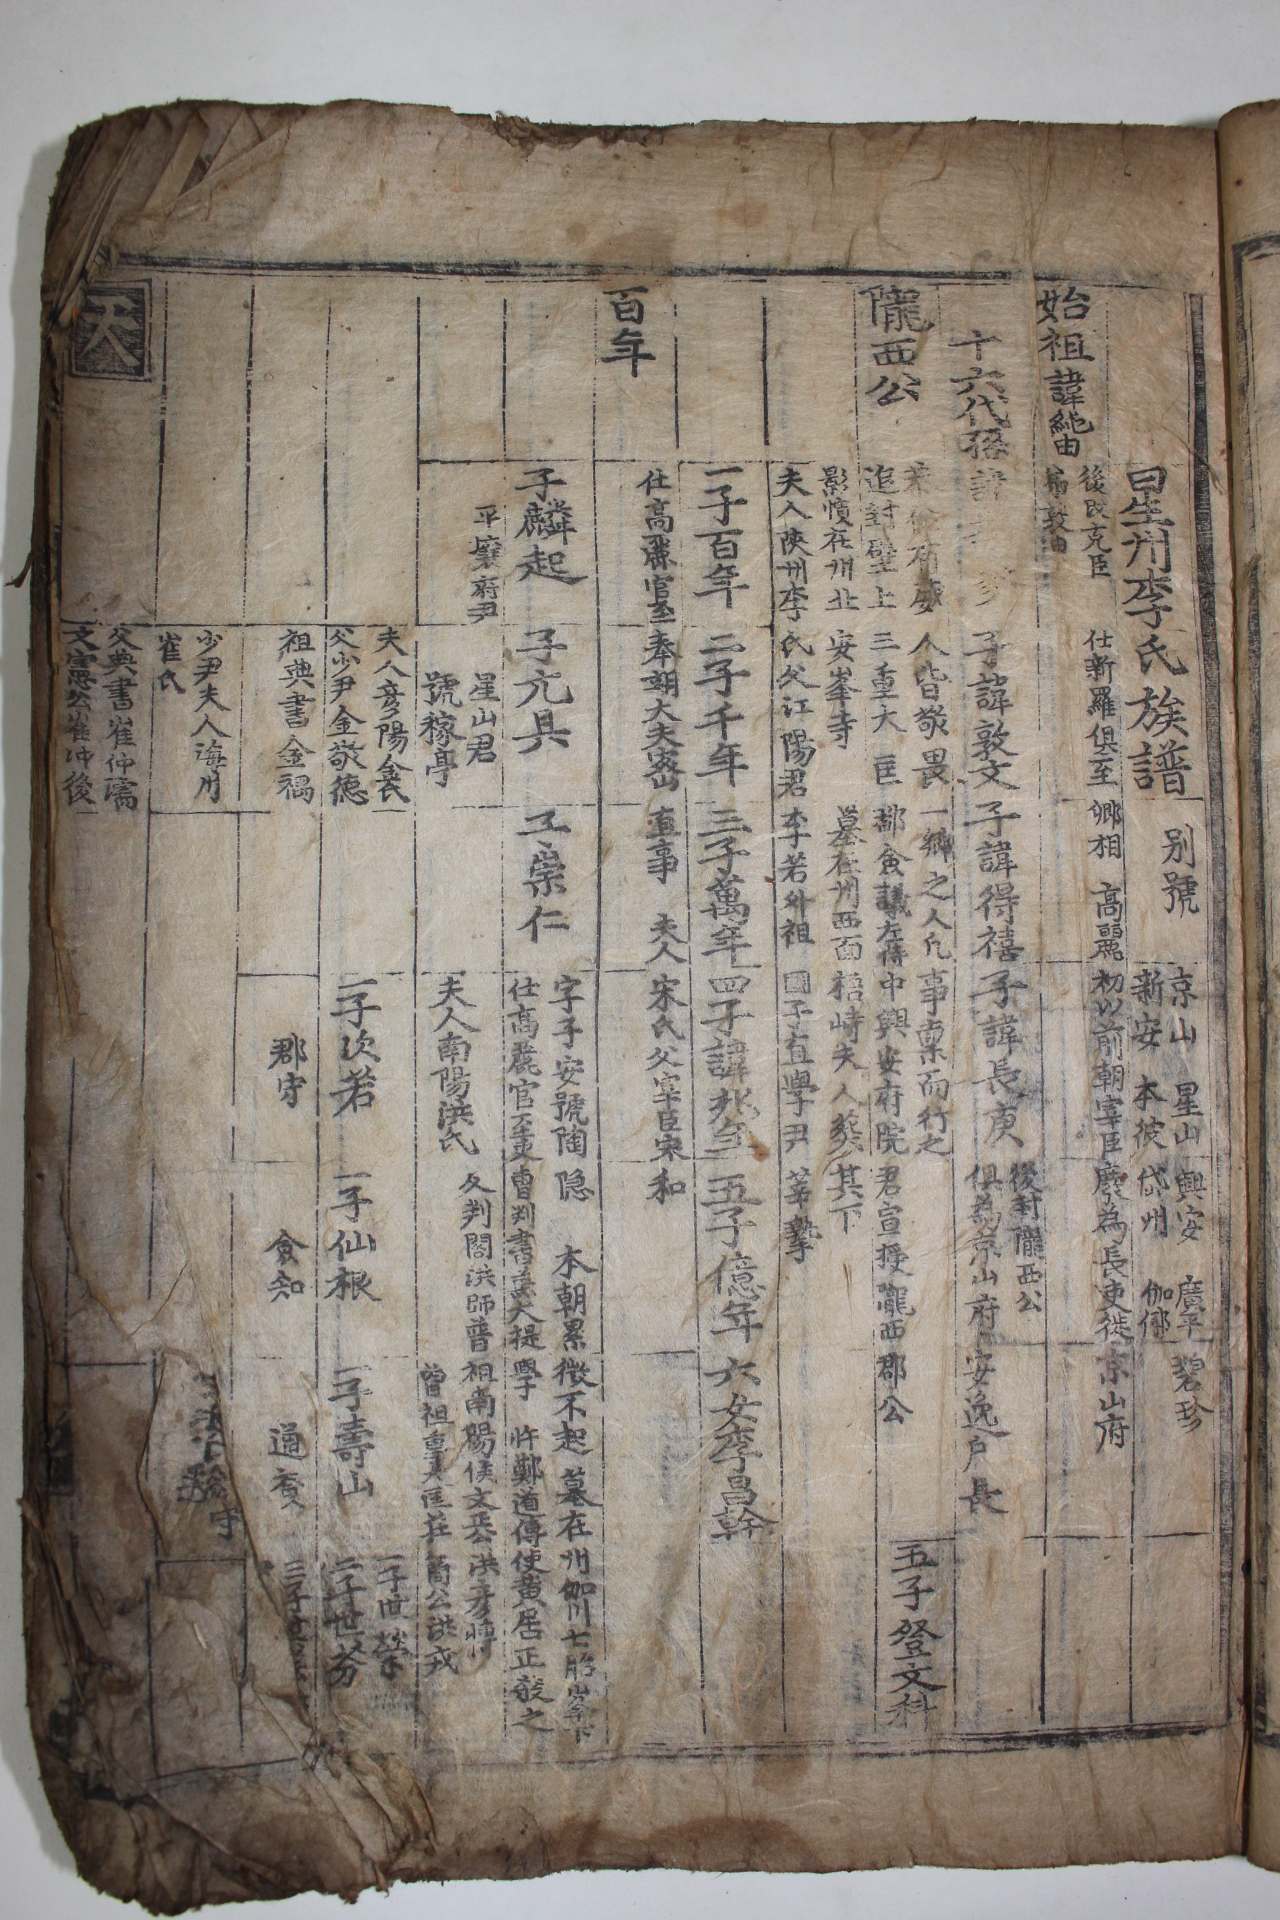 星州李氏族譜 別號 京山 星山 興安 廣平 碧珍
新安 本彼 岱州 伽倻
始祖諱純由 後改克臣 仕新羅俱至卿相 高麗初以前朝宰臣廢為長吏徙京山府
弟敦由
十六代孫諱 子諱敦文 子諱得禧 子諱長庚 後封隴西公
俱為京山府安逸戶長
人皆敬畏一鄉之人凡事稟而行之
隴西公 追封壁上三重大匡都僉議左侍中興安府院君宣授隴西郡公 五子登文科
影幀在州北安峯寺 墓在州西面梧峙夫人葬其下
夫人陜州李氏父江陽君李若外祖國子直學尹莘摯
一子百年 二子千年 三子萬年 四子諱兆年 五子億年 六女李昌幹
百年 仕高麗官至奉朝大夫密直事 夫人宋氏父宰臣宋和
子麟起 子元具 子崇仁 字子安號陶隱 本朝累徵不起 墓在州伽川七胎山峯下
仕高麗官至吏曹判書兼大提學 忤鄭道傳使黃居正殺之
平壤府尹 星山君 號稼亭
夫人南陽洪氏 父判閣洪師普祖南陽侯文正公洪彥博
曾祖重大匡莊簡公洪戎
夫人彥陽金氏
父少尹金敬德
祖典書金禍
二子次若 一子仙根 一子壽山 一子世榮
二子世芬
郡守 僉知 通贊
少尹夫人海州
崔氏
父典書崔仲濡
文憲公崔冲後
天